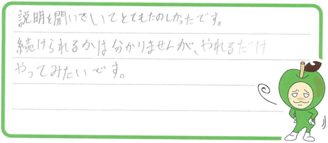 説明を聞いていてとてもたのしかったです。
続けられるかは分かりませんが、やれるだけ
やってみたいです。